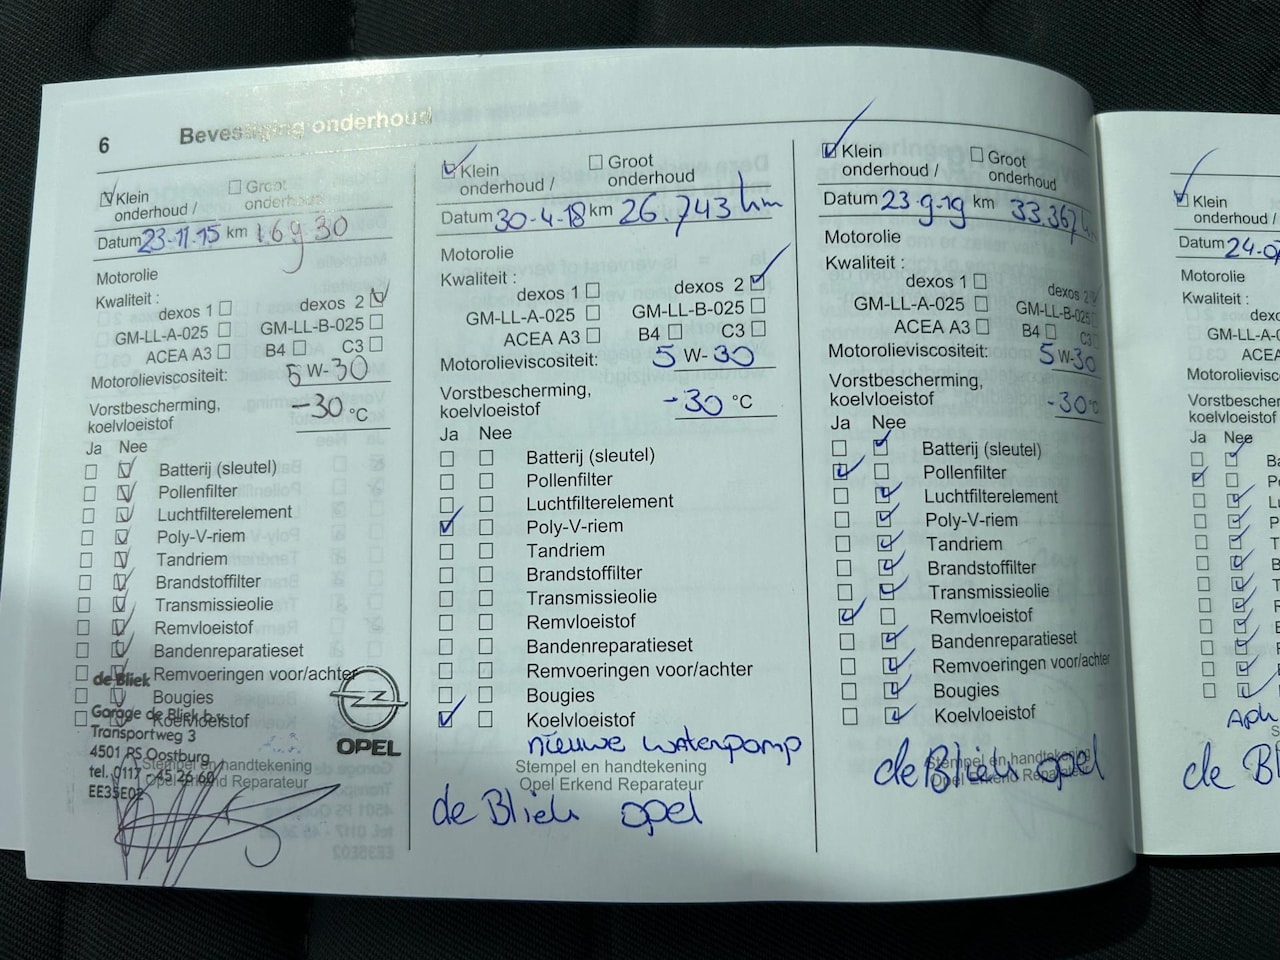 6 Bevestiging onderhoud
Klein onderhoud / Groot onderhoud
Datum 23-11-15 km 16930
Motorolie
Kwaliteit :
dexos 1 dexos 2
GM-LL-A-025 GM-LL-B-025
ACEA A3 B4 C3
Motorolieviscositeit: 5 W-30
Vorstbescherming,
koelvloeistof -30 °C
Ja Nee
Batterij (sleutel)
Pollenfilter
Luchtfilterelement
Poly-V-riem
Tandriem
Brandstoffilter
Transmissieolie
Remvloeistof
Bandenreparatieset
Remvoeringen voor/achter
Bougies
Koelvloeistof
de Bliek
Garage de Bliek b.v.
Transportweg 3
4501 PS Oostburg
tel. 0117 - 45 26 60
EE35E02
OPEL
Stempel en handtekening
Opel Erkend Reparateur
Klein onderhoud / Groot onderhoud
Datum 30-4-18 km 26.743 km
Motorolie
Kwaliteit :
dexos 1 dexos 2
GM-LL-A-025 GM-LL-B-025
ACEA A3 B4 C3
Motorolieviscositeit: 5 W-30
Vorstbescherming,
koelvloeistof -30 °C
Ja Nee
Batterij (sleutel)
Pollenfilter
Luchtfilterelement
Poly-V-riem
Tandriem
Brandstoffilter
Transmissieolie
Remvloeistof
Bandenreparatieset
Remvoeringen voor/achter
Bougies
Koelvloeistof
nieuwe waterpomp
Stempel en handtekening
Opel Erkend Reparateur
de Bliek opel
Klein onderhoud / Groot onderhoud
Datum 23-9-19 km 33.367 km
Motorolie
Kwaliteit :
dexos 1 dexos 2
GM-LL-A-025 GM-LL-B-025
ACEA A3 B4 C3
Motorolieviscositeit: 5 W-30
Vorstbescherming,
koelvloeistof -30 °C
Ja Nee
Batterij (sleutel)
Pollenfilter
Luchtfilterelement
Poly-V-riem
Tandriem
Brandstoffilter
Transmissieolie
Remvloeistof
Bandenreparatieset
Remvoeringen voor/achter
Bougies
Koelvloeistof
Stempel en handtekening
Opel Erkend Reparateur
de Bliek opel
Klein
onderhoud /
Datum 24-0
Motorolie
Kwaliteit :
GM-LL-A-02
ACEA
Motorolievisc
Vorstbescher
koelvloeistof
Ja Nee
de Bl